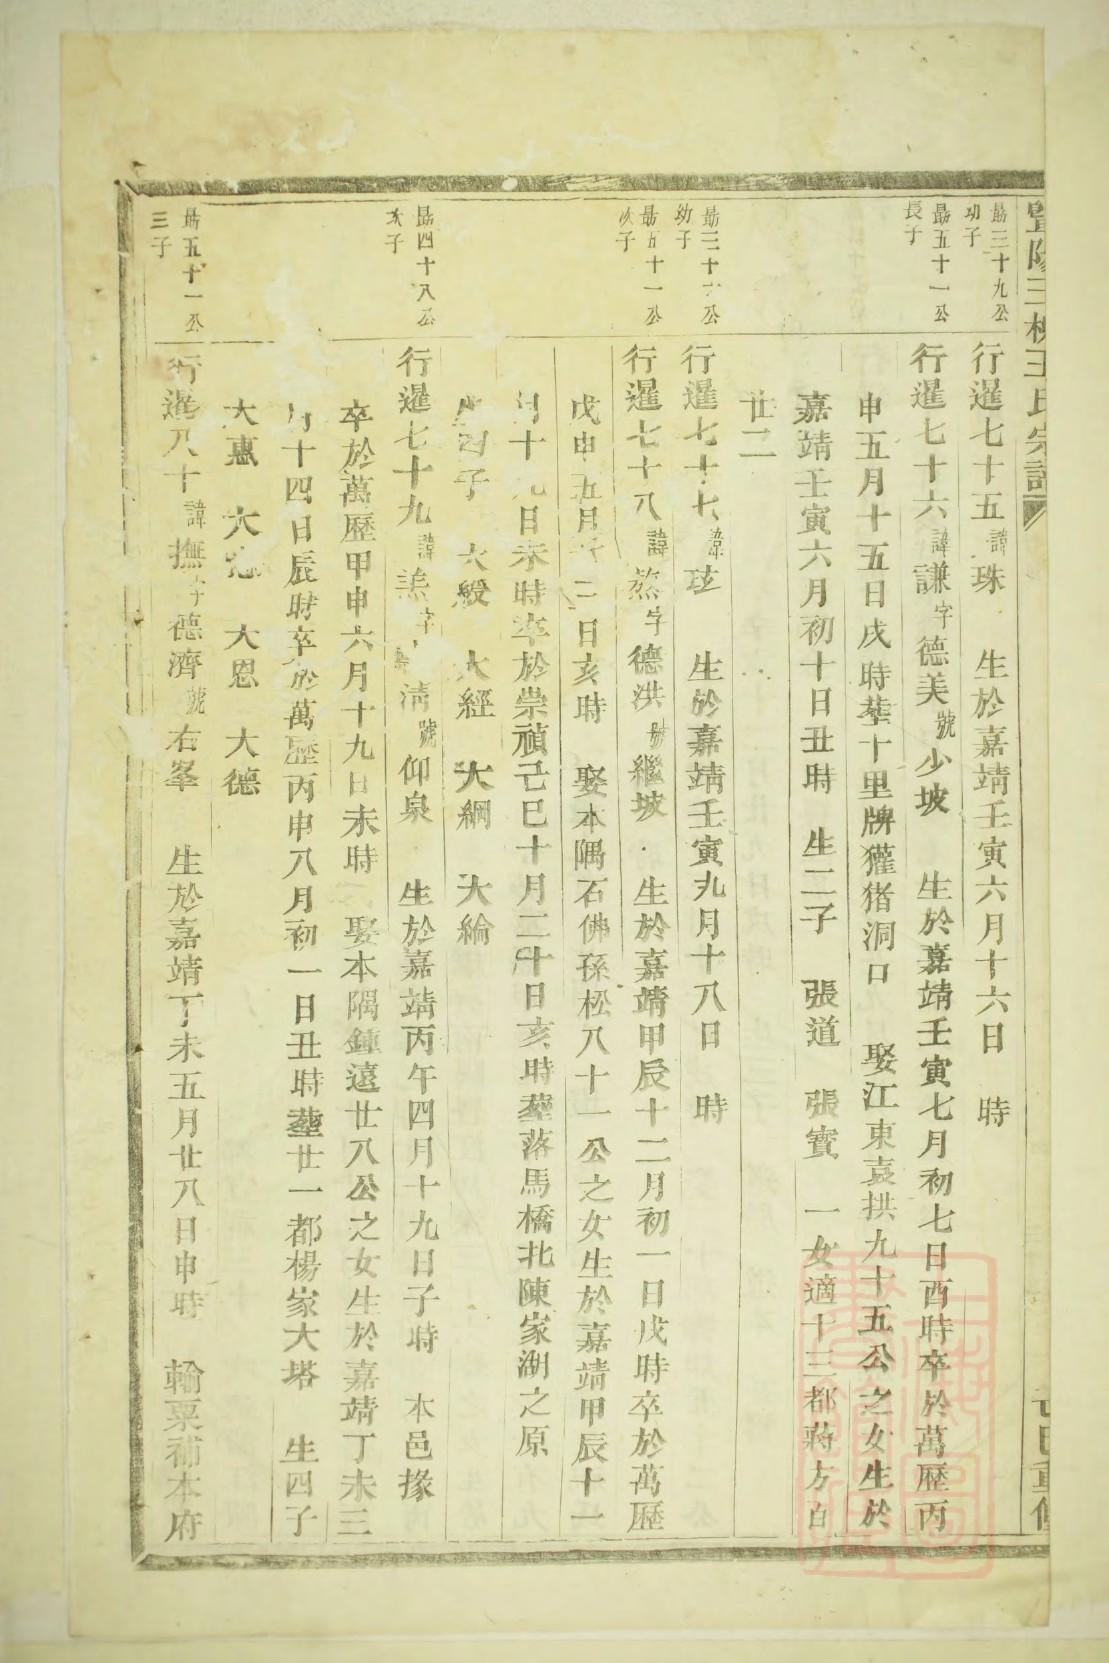 暨陽王氏宗譜
最三十九公
幼子
行暹七十五諱珠 生於嘉靖壬寅六月十六日 時
最五十一公
長子
行暹七十六諱謙字德美號少坡 生於嘉靖壬寅七月初七日酉時卒於萬歷丙
申五月十五日戌時塟十里牌獾猪洞口 娶江東袁拱九十五公之女生於
嘉靖壬寅六月初十日丑時 生二子 張道 張寶 一女適十三都蔣方白
廿二
最三十六公
幼子
行暹七十七諱玹 生於嘉靖壬寅九月十八日 時
最五十一公
次子
行暹七十八諱 字德洪號繼坡 生於嘉靖甲辰十二月初一日戌時卒於萬歷
戊申五月 二日亥時 娶本隅石佛孫松八十一公之女生於嘉靖甲辰十一
月十九日未時卒於崇禎己巳十月二十日亥時塟落馬橋北陳家湖之原
生四子 大綬 大經 大綱 大綸
最四十八公
次子
行暹七十九諱 字 清號仰泉 生於嘉靖丙午四月十九日子時 本邑掾
卒於萬歷甲申六月十九日未時 娶本隅鍾遠廿八公之女生於嘉靖丁未三
月十四日辰時卒於萬歷丙申八月初一日丑時塟廿一都楊家大塔 生四子
大惠 大 大恩 大德
最五十一公
三子
行暹八十諱撫字德濟號右峯 生於嘉靖丁未五月廿八日申時 輸粟補本府